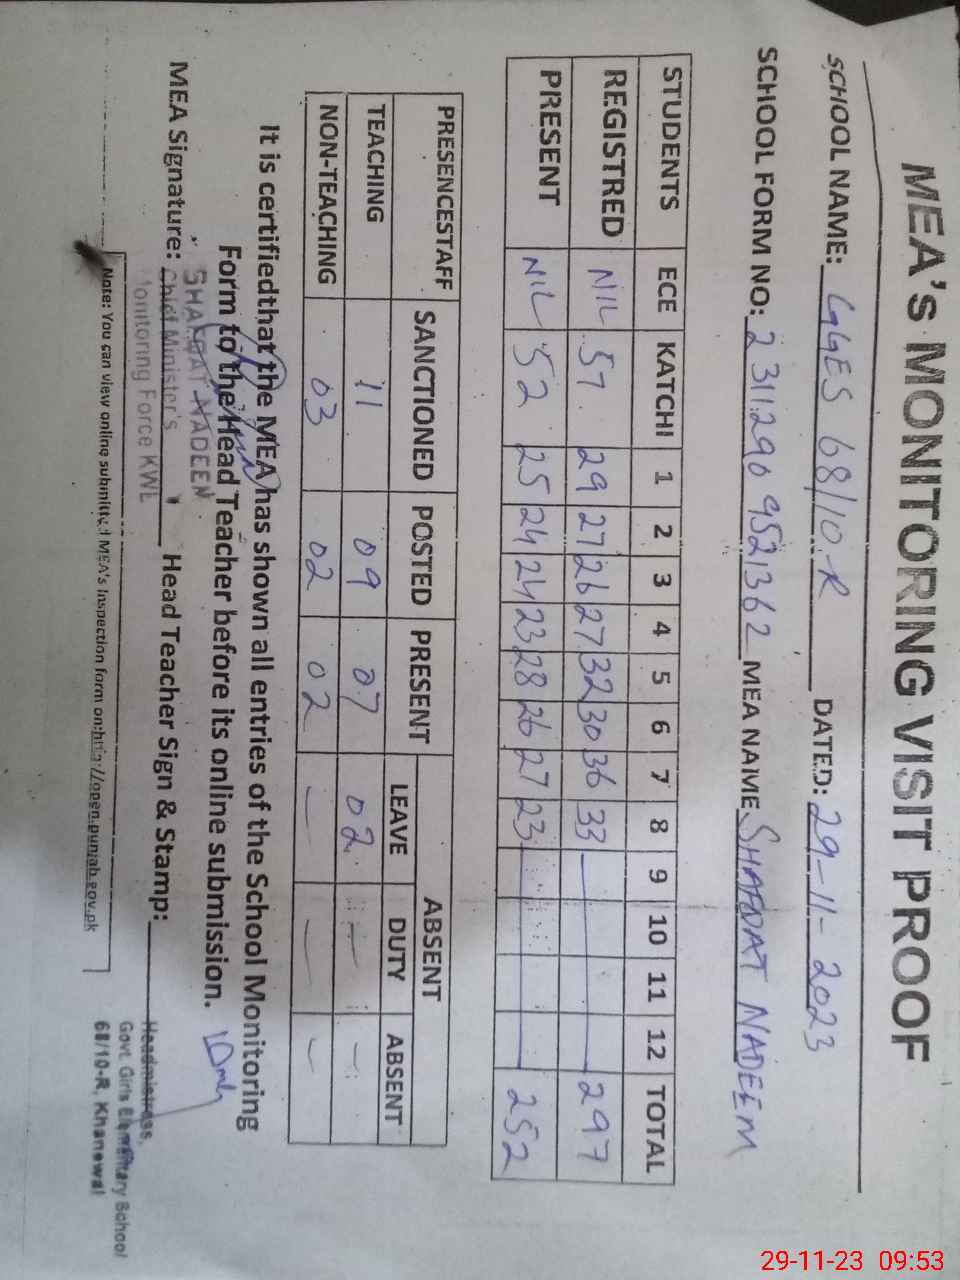 MEA's MONITORING VISIT PROOF
SCHOOL NAME: GGES 68/10-R DATED: 29-11-2023
SCHOOL FORM NO: 23112909521362 MEA NAME SHAFQAT NADEEM
STUDENTS ECE KATCHI 1 2 3 4 5 6 7 8 9 10 11 12 TOTAL
REGISTRED NIL 57 29 27 26 27 32 30 36 33 297
PRESENT NIL 52 25 24 24 23 28 26 27 23 252
PRESENCESTAFF SANCTIONED POSTED PRESENT ABSENT
LEAVE DUTY ABSENT
TEACHING 11 09 07 02 — —
NON-TEACHING 03 02 02 — — —
It is certifiedthat the MEA has shown all entries of the School Monitoring
Form to the Head Teacher before its online submission.
MEA Signature: Head Teacher Sign & Stamp:
SHAFQAT NADEEN
Chief Minister's
Monitoring Force KWL
Headmistress
Govt. Girls Elementary School
68/10-R, Khanewal
Note: You can view online submitted MEA's Inspection form on:http://open.punjab.gov.pk
29-11-23 09:53